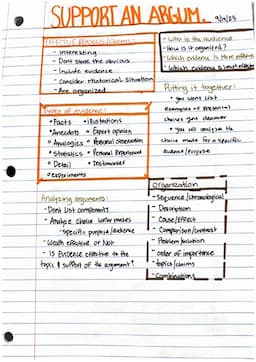 SUPPORT AN ARGUM.
EFFECTIVE REASONS/Claims:
- Interesting
- Dont state the obvious
- Include evidence
- Consider rhetorical situation
- Are organized
- Who is the audience
- How is it organized?
- Which evidence is most effective
- Which evidence is least effective
Putting it together:
• You wont List
examples of rhetorical
choices you discover
• You will analyze the
choice made for a specific
audience/purpose
Types of evidence:
• Facts
• Anecdotes
• Analogies
• Statistics
• Detail
• experiments
• illustrations
• Expert opinion
• Personal observation
• Personal Experience
• Testimonies
Analyzing arguments:
- Dont List components
- Analyze choice writer makes
- Specific purpose/audience
- Weath effective or Not
- Is Evidence effective to the
topic & support of the argument?
Organization
- Sequence/chronological
- Description
- Cause/effect
- Comparison/contrast
- Problem/solution
- order of importance
- topics/claims
- Combinations